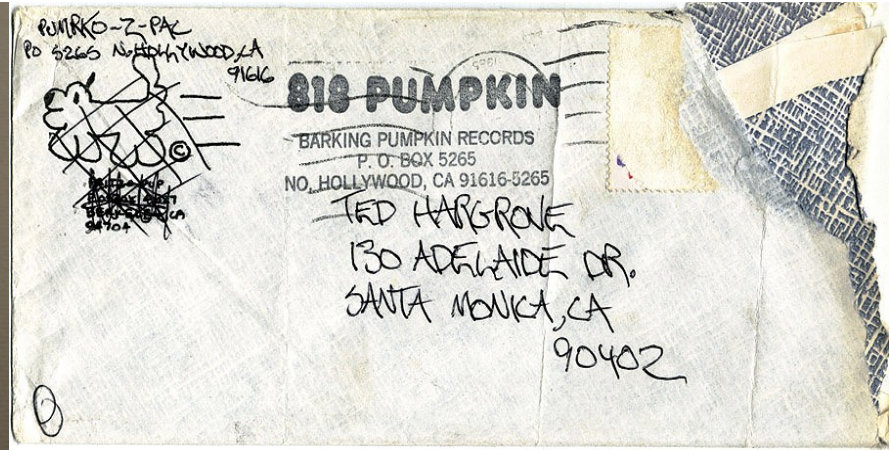 PUMPKO-Z-PAC
PO 5265 No HOLLYWOOD, CA
91616
©
94704
1985
818 PUMPKIN
BARKING PUMPKIN RECORDS
P. O. BOX 5265
NO. HOLLYWOOD, CA 91616-5265
TED HARGROVE
130 ADELAIDE DR.
SANTA MONICA, CA
90402